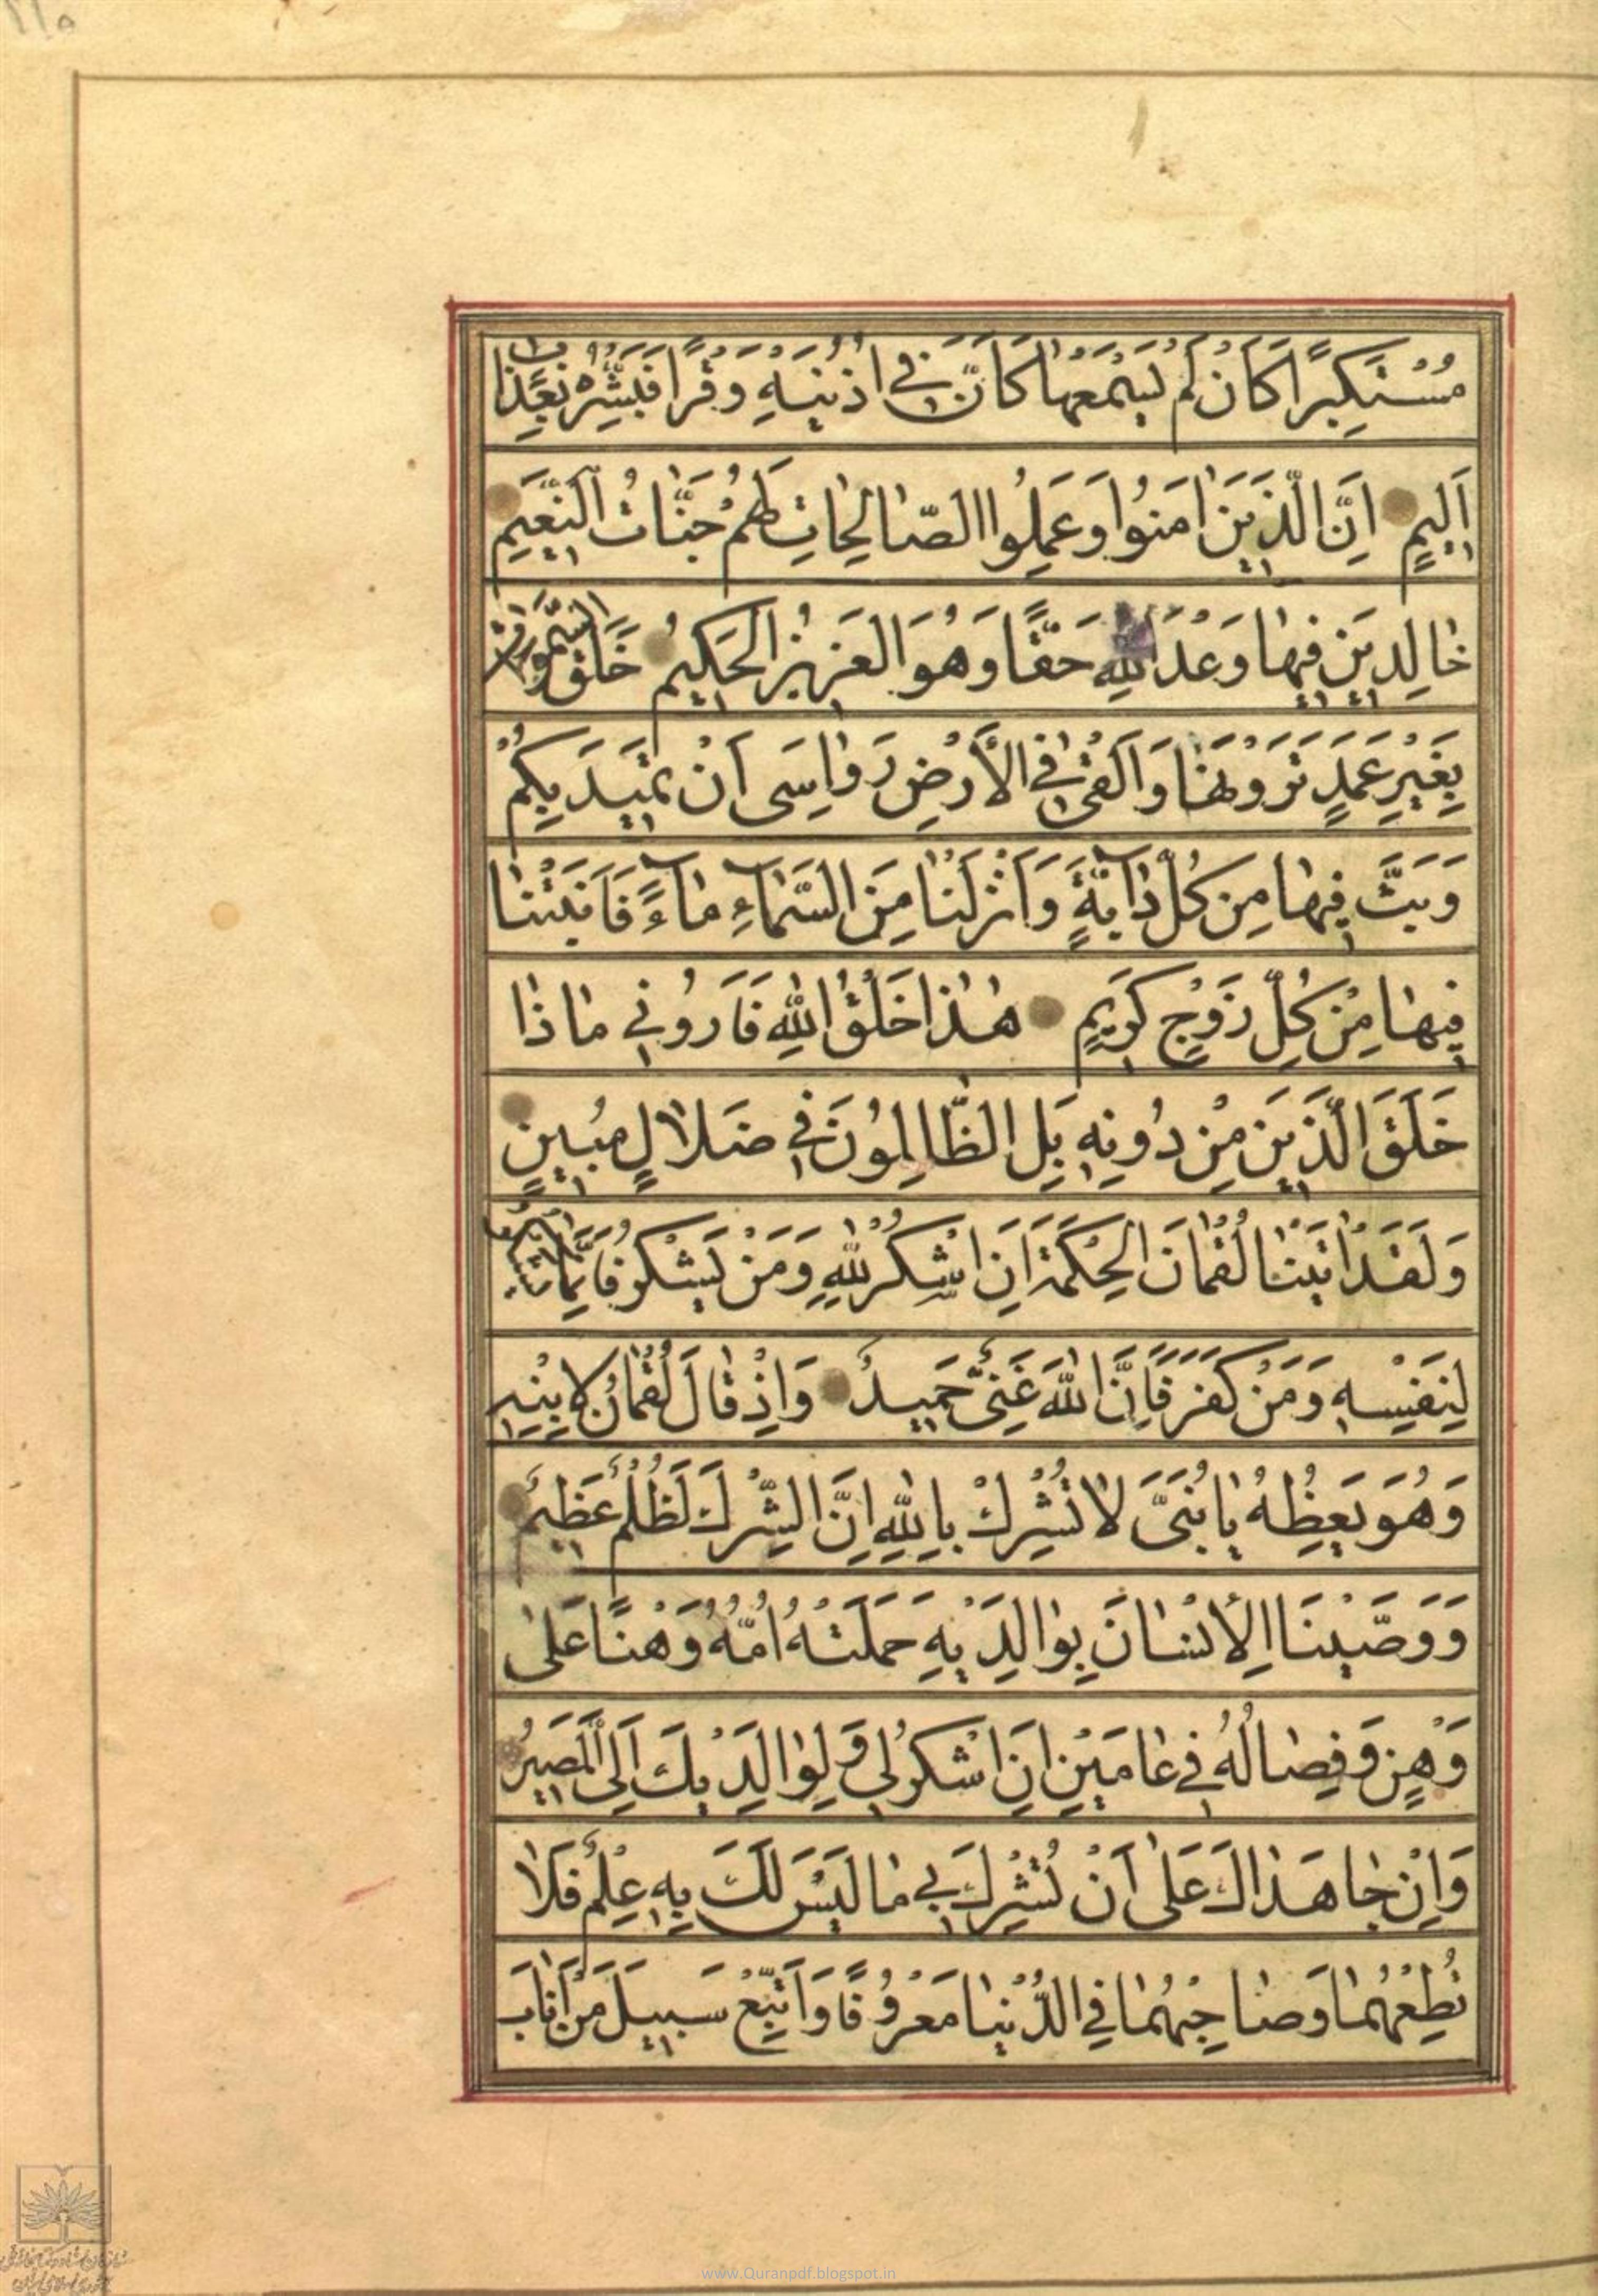 مُسْتَكْبِرًا كَاَنْ لَمْ يَسْمَعْهٰا كَاَنَّ فِي اُذُنَيْهِ وَقْرًا فَبَشِّرْهُ بِعَذٰابٍ
اَلِيمٍ اِنَّ الَّذِينَ اٰمَنُوا وَعَمِلُوا الصّٰالِحٰاتِ لَهُمْ جَنّٰاتُ النَّعِيمِ
خٰالِدِينَ فِيهٰا وَعْدَ اللهِ حَقًّا وَهُوَ الْعَزِيزُ الْحَكِيمُ خَلَقَ السَّمٰوٰاتِ
بِغَيْرِ عَمَدٍ تَرَوْنَهٰا وَاَلْقٰى فِي الْاَرْضِ رَوٰاسِىَ اَنْ تَمِيدَ بِكُمْ
وَبَثَّ فِيهٰا مِنْ كُلِّ دٰابَّةٍ وَاَنْزَلْنٰا مِنَ السَّمٰاءِ مٰاءً فَاَنْبَتْنٰا
فِيهٰا مِنْ كُلِّ زَوْجٍ كَرِيمٍ هٰذٰا خَلْقُ اللهِ فَاَرُونِي مٰاذٰا
خَلَقَ الَّذِينَ مِنْ دُونِهِ بَلِ الظّٰالِمُونَ فِي ضَلٰالٍ مُبِينٍ
وَلَقَدْ اٰتَيْنٰا لُقْمٰانَ الْحِكْمَةَ اَنِ اشْكُرْ لِلّٰهِ وَمَنْ يَشْكُرْ فَاِنَّمٰا يَشْكُرُ
لِنَفْسِهِ وَمَنْ كَفَرَ فَاِنَّ اللهَ غَنِىٌّ حَمِيدٌ وَاِذْ قٰالَ لُقْمٰانُ لِابْنِهِ
وَهُوَ يَعِظُهُ يٰا بُنَىَّ لٰا تُشْرِكْ بِاللهِ اِنَّ الشِّرْكَ لَظُلْمٌ عَظِيمٌ
وَوَصَّيْنَا الْاِنْسٰانَ بِوٰالِدَيْهِ حَمَلَتْهُ اُمُّهُ وَهْنًا عَلٰى
وَهْنٍ وَفِصٰالُهُ فِي عٰامَيْنِ اَنِ اشْكُرْ لِي وَلِوٰالِدَيْكَ اِلَىَّ الْمَصِيرُ
وَاِنْ جٰاهَدٰاكَ عَلٰى اَنْ تُشْرِكَ بِي مٰا لَيْسَ لَكَ بِهِ عِلْمٌ فَلٰا
تُطِعْهُمٰا وَصٰاحِبْهُمٰا فِي الدُّنْيٰا مَعْرُوفًا وَاتَّبِعْ سَبِيلَ مَنْ اَنٰابَ
www.Quranpdf.blogspot.in